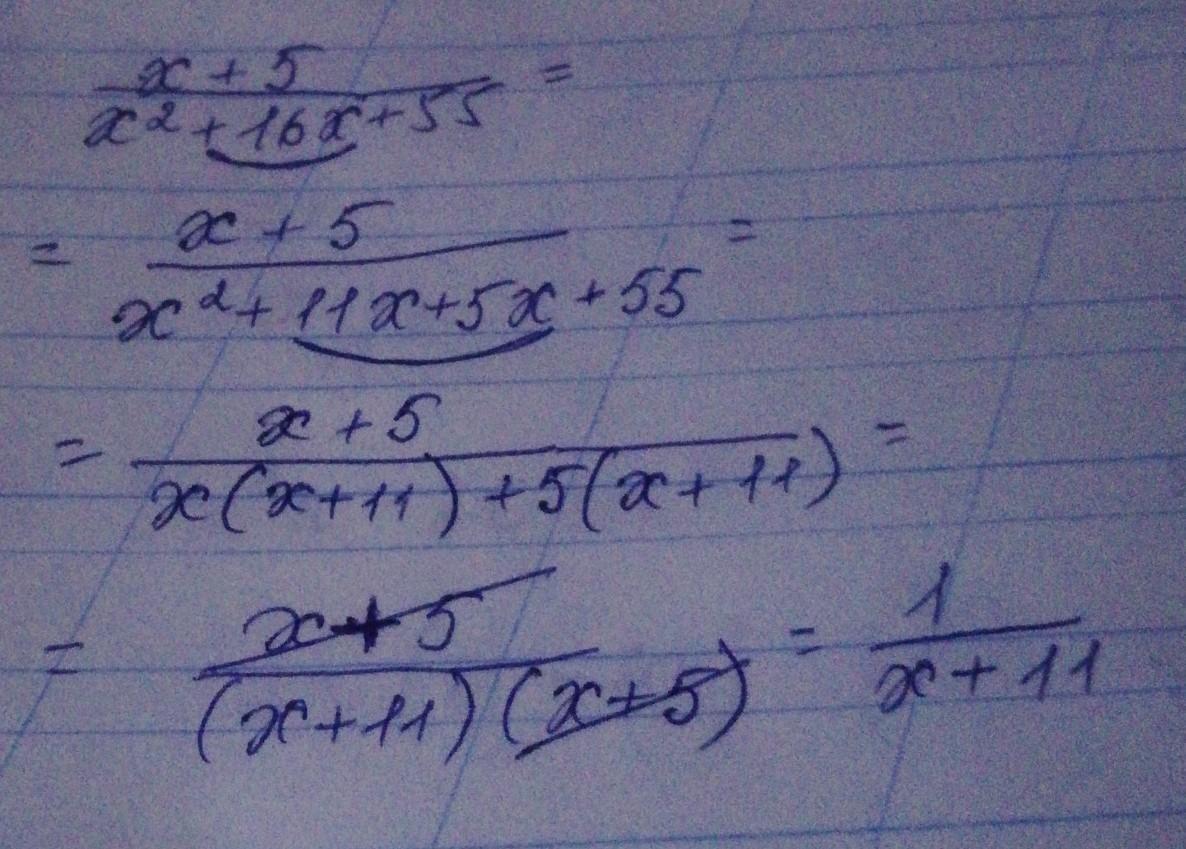 (x + 5)/(x² + 16x + 55) =
= (x + 5)/(x² + 11x + 5x + 55) =
= (x + 5)/(x(x + 11) + 5(x + 11)) =
= (x + 5)/((x + 11)(x + 5)) = 1/(x + 11)